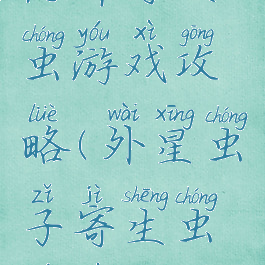 chóng yóu xì gōng
虫游戏攻
lüè wài xīng chóng
略(外星虫
zǐ jì shēng chóng
子寄生虫